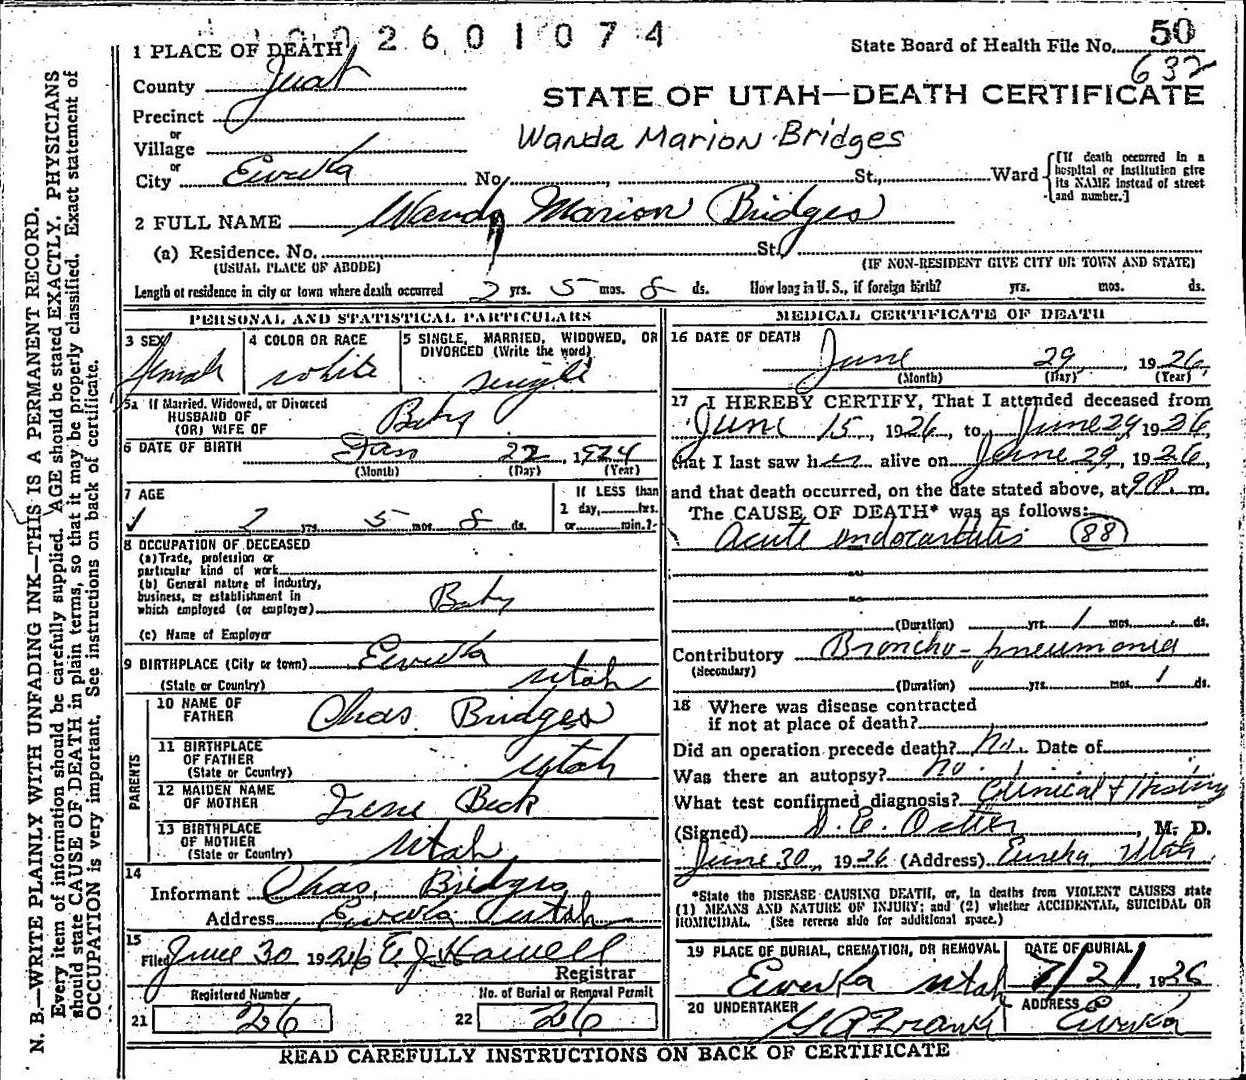 1002601074
State Board of Health File No. 50
632
1 PLACE OF DEATH
County Juab
STATE OF UTAH—DEATH CERTIFICATE
Precinct
or
Village
Wanda Marion Bridges
or
City Eureka No. St., Ward
[If death occurred in a hospital or institution give its NAME instead of street and number.]
2 FULL NAME Wanda Marion Bridges
(a) Residence. No. St.
(USUAL PLACE OF ABODE) (IF NON-RESIDENT GIVE CITY OR TOWN AND STATE)
Length of residence in city or town where death occurred 2 yrs. 5 mos. 8 ds. How long in U. S., if foreign birth? yrs. mos. ds.
PERSONAL AND STATISTICAL PARTICULARS
3 SEX Female
4 COLOR OR RACE white
5 SINGLE, MARRIED, WIDOWED, OR DIVORCED (Write the word) single
5a If Married, Widowed, or Divorced
HUSBAND OF
(OR) WIFE OF Baby
6 DATE OF BIRTH Jan 22, 1924
(Month) (Day) (Year)
7 AGE
2 yrs. 5 mos. 8 ds.
If LESS than
1 day, hrs.
or min.?
8 OCCUPATION OF DECEASED
(a) Trade, profession or
particular kind of work
(b) General nature of industry,
business, or establishment in
which employed (or employer) Baby
(c) Name of Employer
9 BIRTHPLACE (City or town) Eureka
(State or Country) Utah
PARENTS
10 NAME OF
FATHER Chas. Bridges
11 BIRTHPLACE
OF FATHER
(State or Country) Utah
12 MAIDEN NAME
OF MOTHER Irene Beck
13 BIRTHPLACE
OF MOTHER
(State or Country) Utah
14
Informant Chas. Bridges
Address Eureka Utah
15
Filed June 30 1926 E. J. Howell
Registrar
Registered Number No. of Burial or Removal Permit
21 26 22 26
MEDICAL CERTIFICATE OF DEATH
16 DATE OF DEATH
June 29, 1926
(Month) (Day) (Year)
17 I HEREBY CERTIFY, That I attended deceased from
June 15, 1926, to June 29 1926,
that I last saw her alive on June 29, 1926,
and that death occurred, on the date stated above, at 9 P. m.
The CAUSE OF DEATH* was as follows:
Acute endocarditis 88
(Duration) yrs. 1 mos. ds.
Contributory Broncho-pneumonia
(Secondary)
(Duration) yrs. mos. 1 ds.
18 Where was disease contracted
if not at place of death?
Did an operation precede death? No. Date of
Was there an autopsy? no.
What test confirmed diagnosis? Clinical & History
(Signed) D. E. , M. D.
June 30, 1926 (Address) Eureka Utah
*State the DISEASE CAUSING DEATH, or, in deaths from VIOLENT CAUSES state
(1) MEANS AND NATURE OF INJURY; and (2) whether ACCIDENTAL, SUICIDAL OR
HOMICIDAL. (See reverse side for additional space.)
19 PLACE OF BURIAL, CREMATION, OR REMOVAL DATE OF BURIAL
Eureka Utah 7/2/ 1926
20 UNDERTAKER ADDRESS
Eureka
READ CAREFULLY INSTRUCTIONS ON BACK OF CERTIFICATE
N. B.—WRITE PLAINLY WITH UNFADING INK—THIS IS A PERMANENT RECORD.
Every item of information should be carefully supplied. AGE should be stated EXACTLY. PHYSICIANS
should state CAUSE OF DEATH in plain terms, so that it may be properly classified. Exact statement of
OCCUPATION is very important. See instructions on back of certificate.